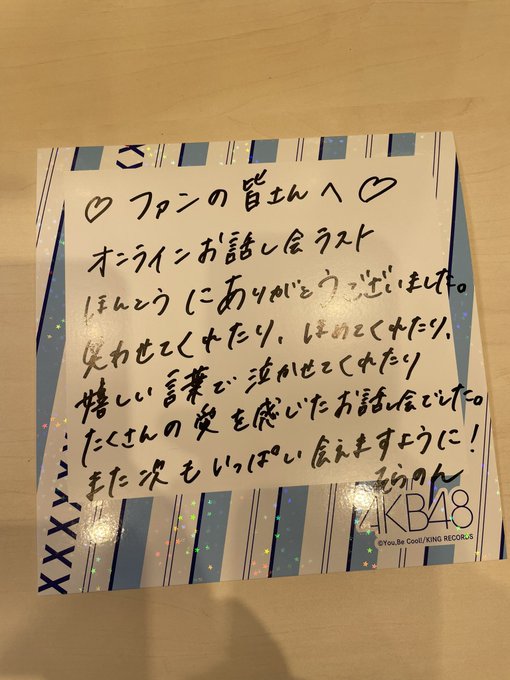 ♡ ファンの皆さんへ ♡
オンラインお話し会ラスト
ほんとうにありがとうございました。
笑わせてくれたり、ほめてくれたり、
嬉しい言葉で泣かせてくれたり
たくさんの愛を感じたお話し会でした。
また次もいっぱい会えますように!
そらのん
AKB48
©You,Be Cool!/KING RECORDS